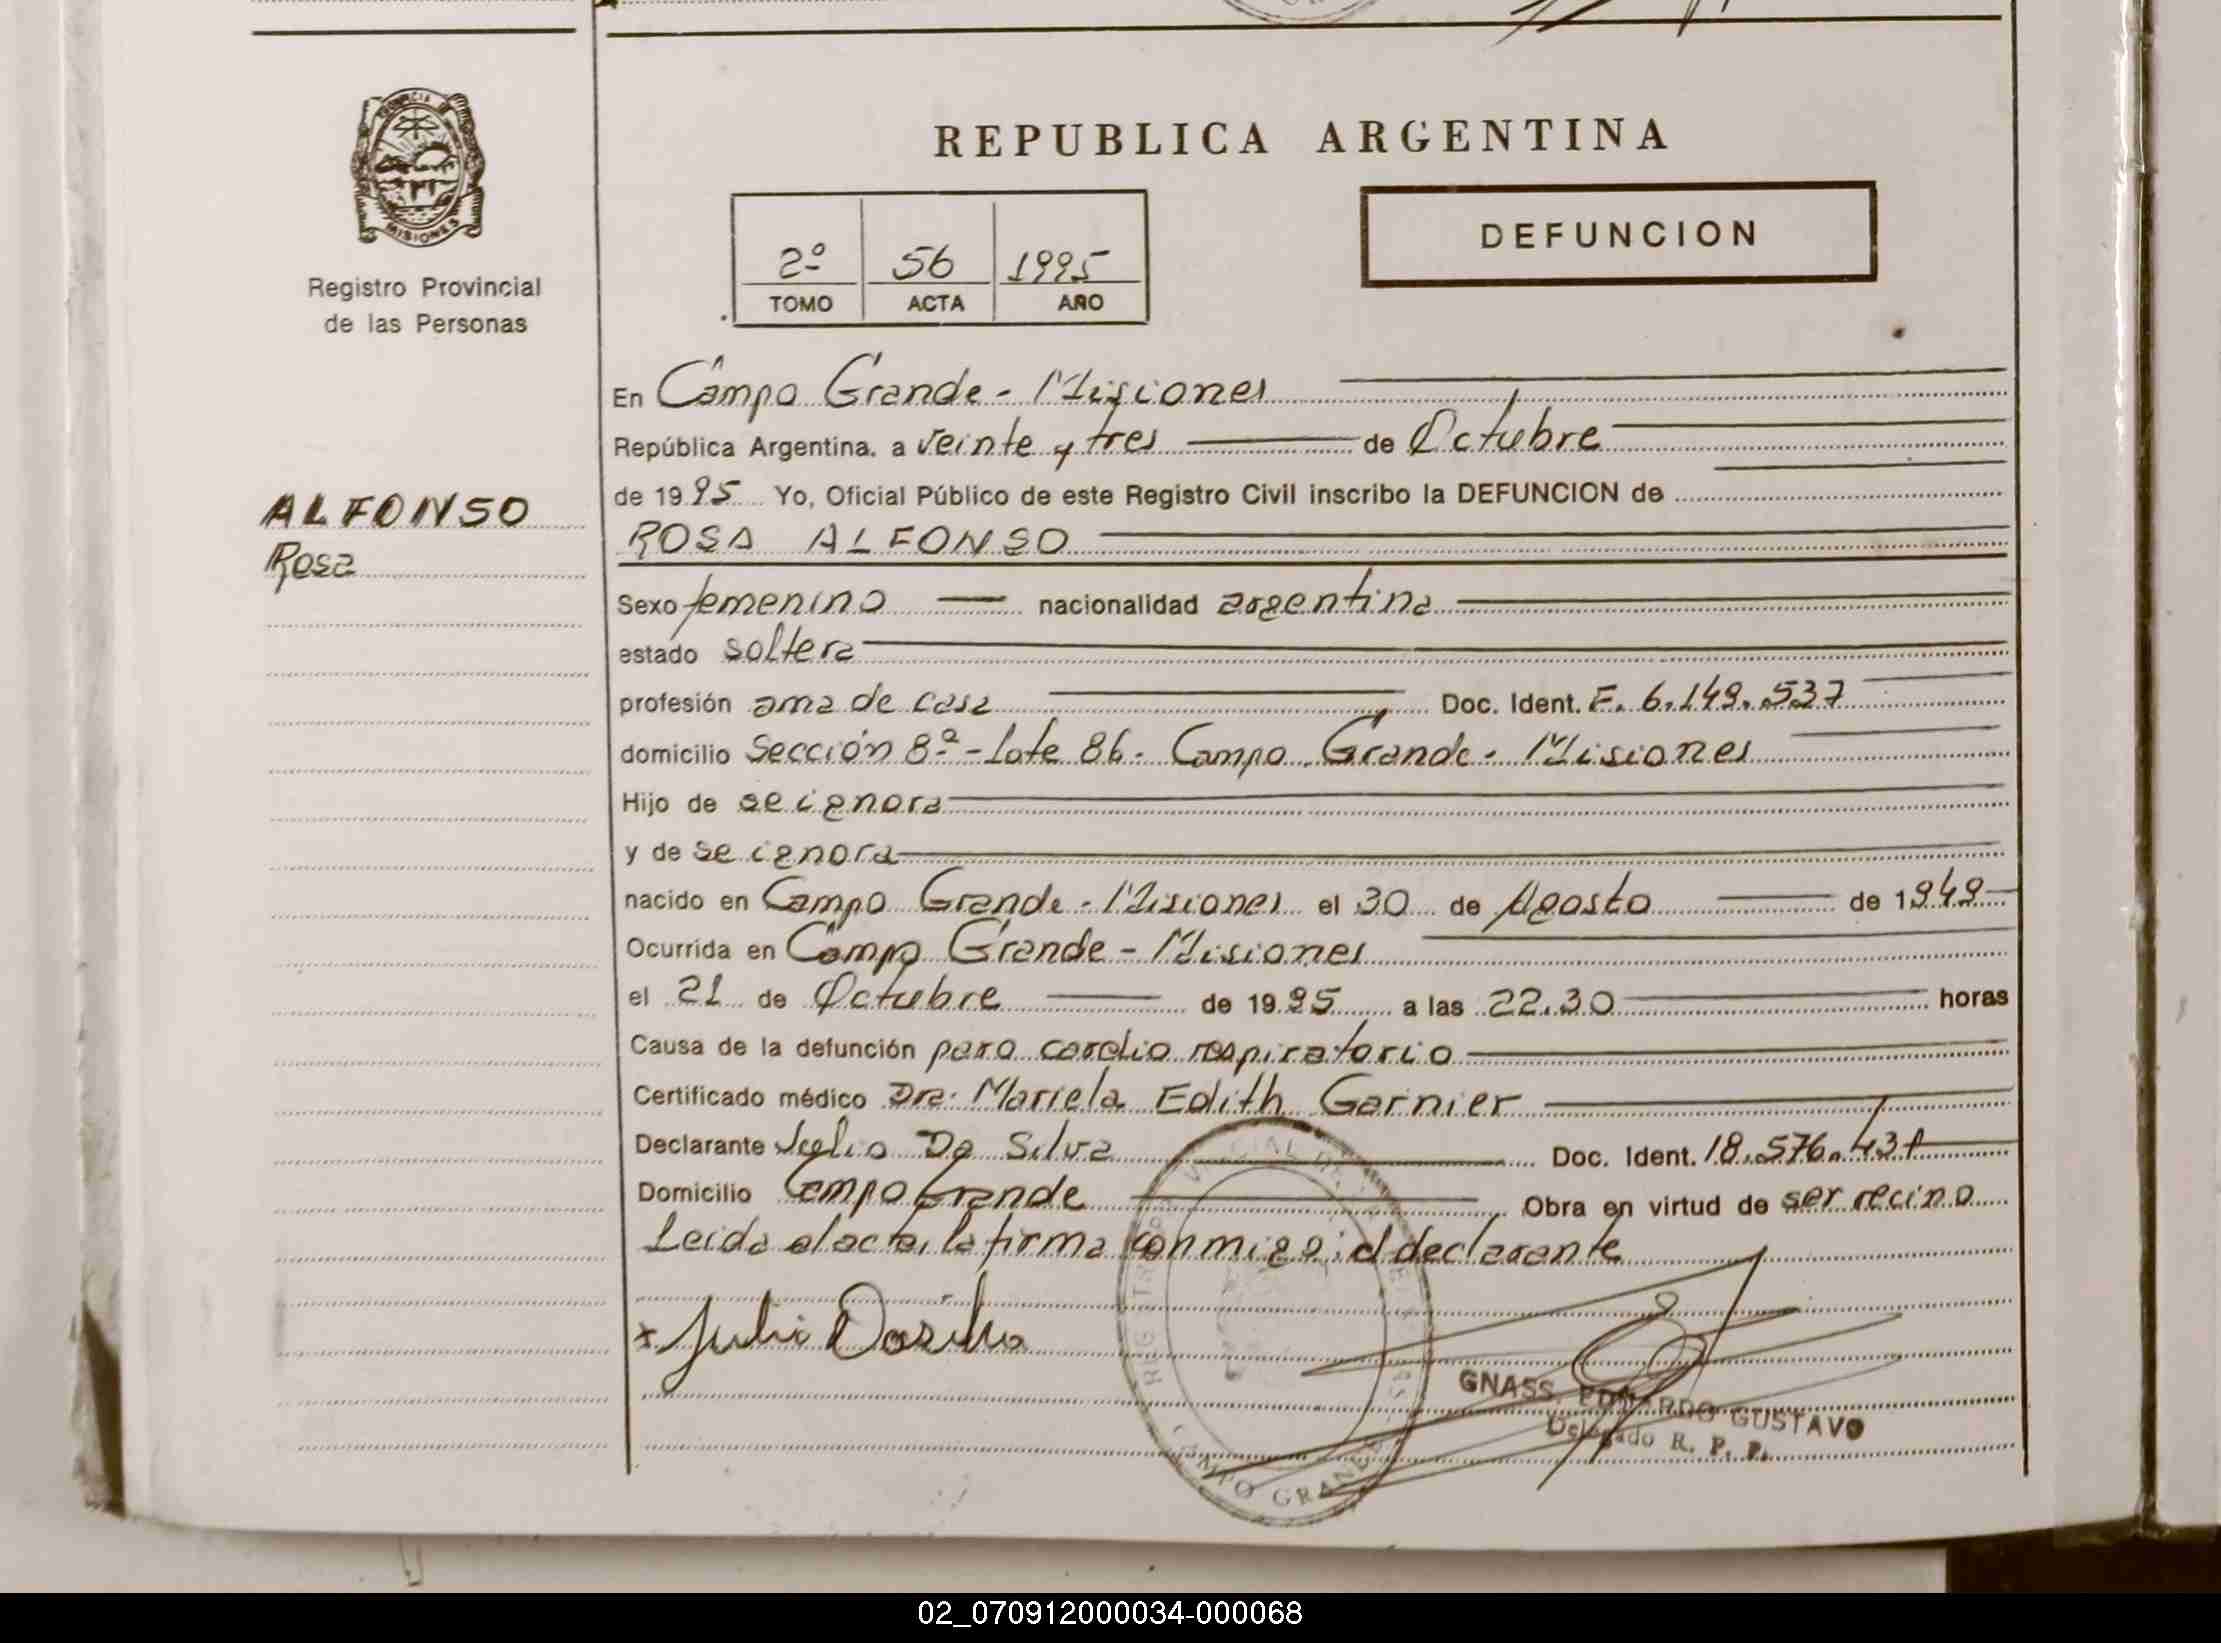 PROVINCIA DE
MISIONES
Registro Provincial
de las Personas
REPUBLICA ARGENTINA
2º 56 1995
TOMO ACTA AÑO
DEFUNCION
En Campo Grande - Misiones
República Argentina, a veinte y tres de Octubre
de 1995 Yo, Oficial Público de este Registro Civil inscribo la DEFUNCION de
ALFONSO
Rosa
ROSA ALFONSO
Sexo femenino nacionalidad argentina
estado soltera
profesión ama de casa Doc. Ident. F. 6.149.537
domicilio Sección 8ª - Lote 86 - Campo Grande - Misiones
Hijo de se ignora
y de se ignora
nacido en Campo Grande - Misiones el 30 de Agosto de 1949
Ocurrida en Campo Grande - Misiones
el 21 de Octubre de 1995 a las 22.30 horas
Causa de la defunción paro cardio respiratorio
Certificado médico Dra. Mariela Edith Garnier
Declarante Julio Da Silva Doc. Ident. 18.576.431
Domicilio Campo Grande Obra en virtud de ser vecino
Leida el acta, la firma conmigo: el declarante
x Julio Dasilva
GNASS, EDUARDO GUSTAVO
Delegado R. P. P.
CAMPO GRANDE
02_070912000034-000068